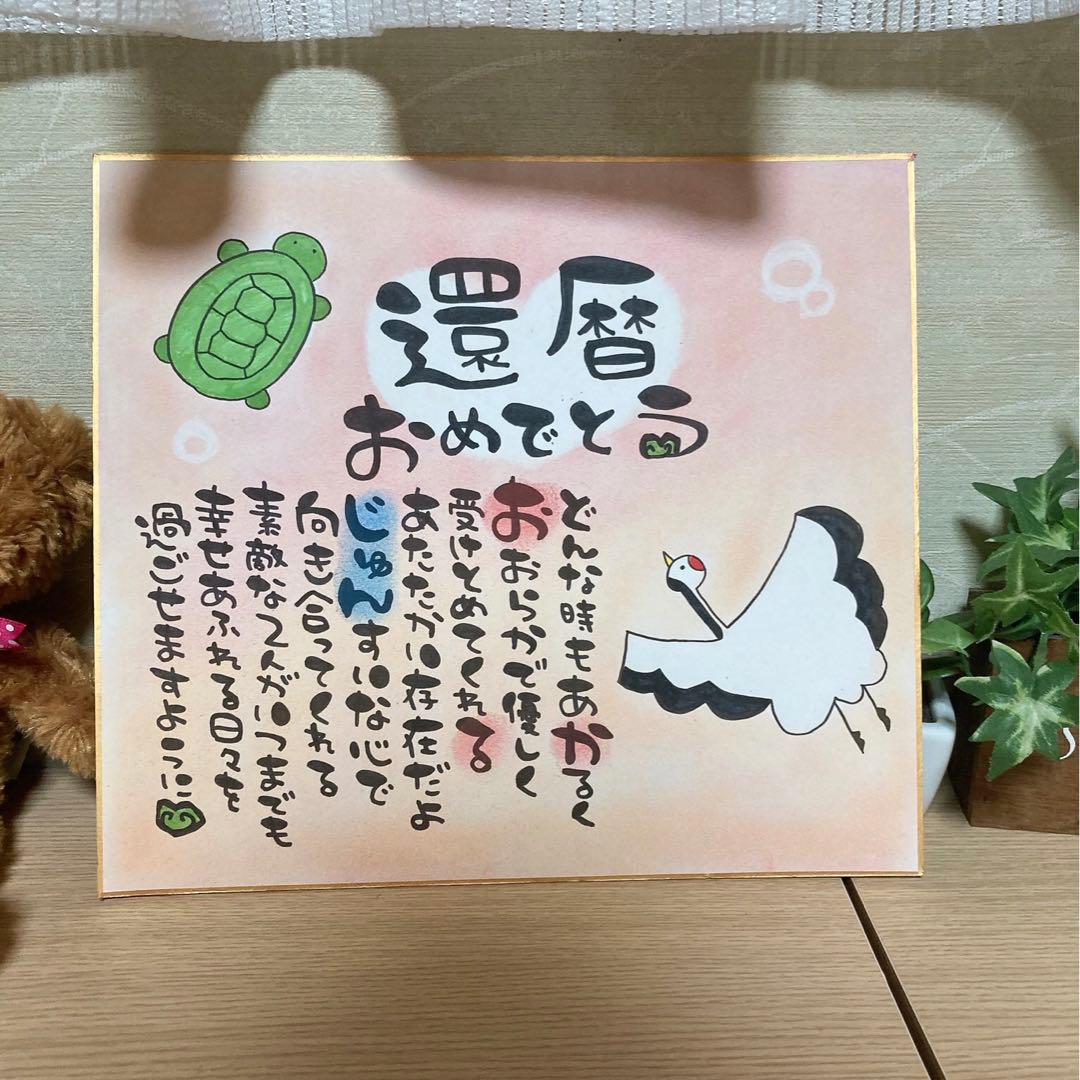 還暦
おめでとう
どんな時もあかるく
おおらかで優しく
受けとめてくれる
あたたかい存在だよ
じゅんすいな心で
向き合ってくれる
素敵な2人がいつまでも
幸せあふれる日々を
過ごせますように